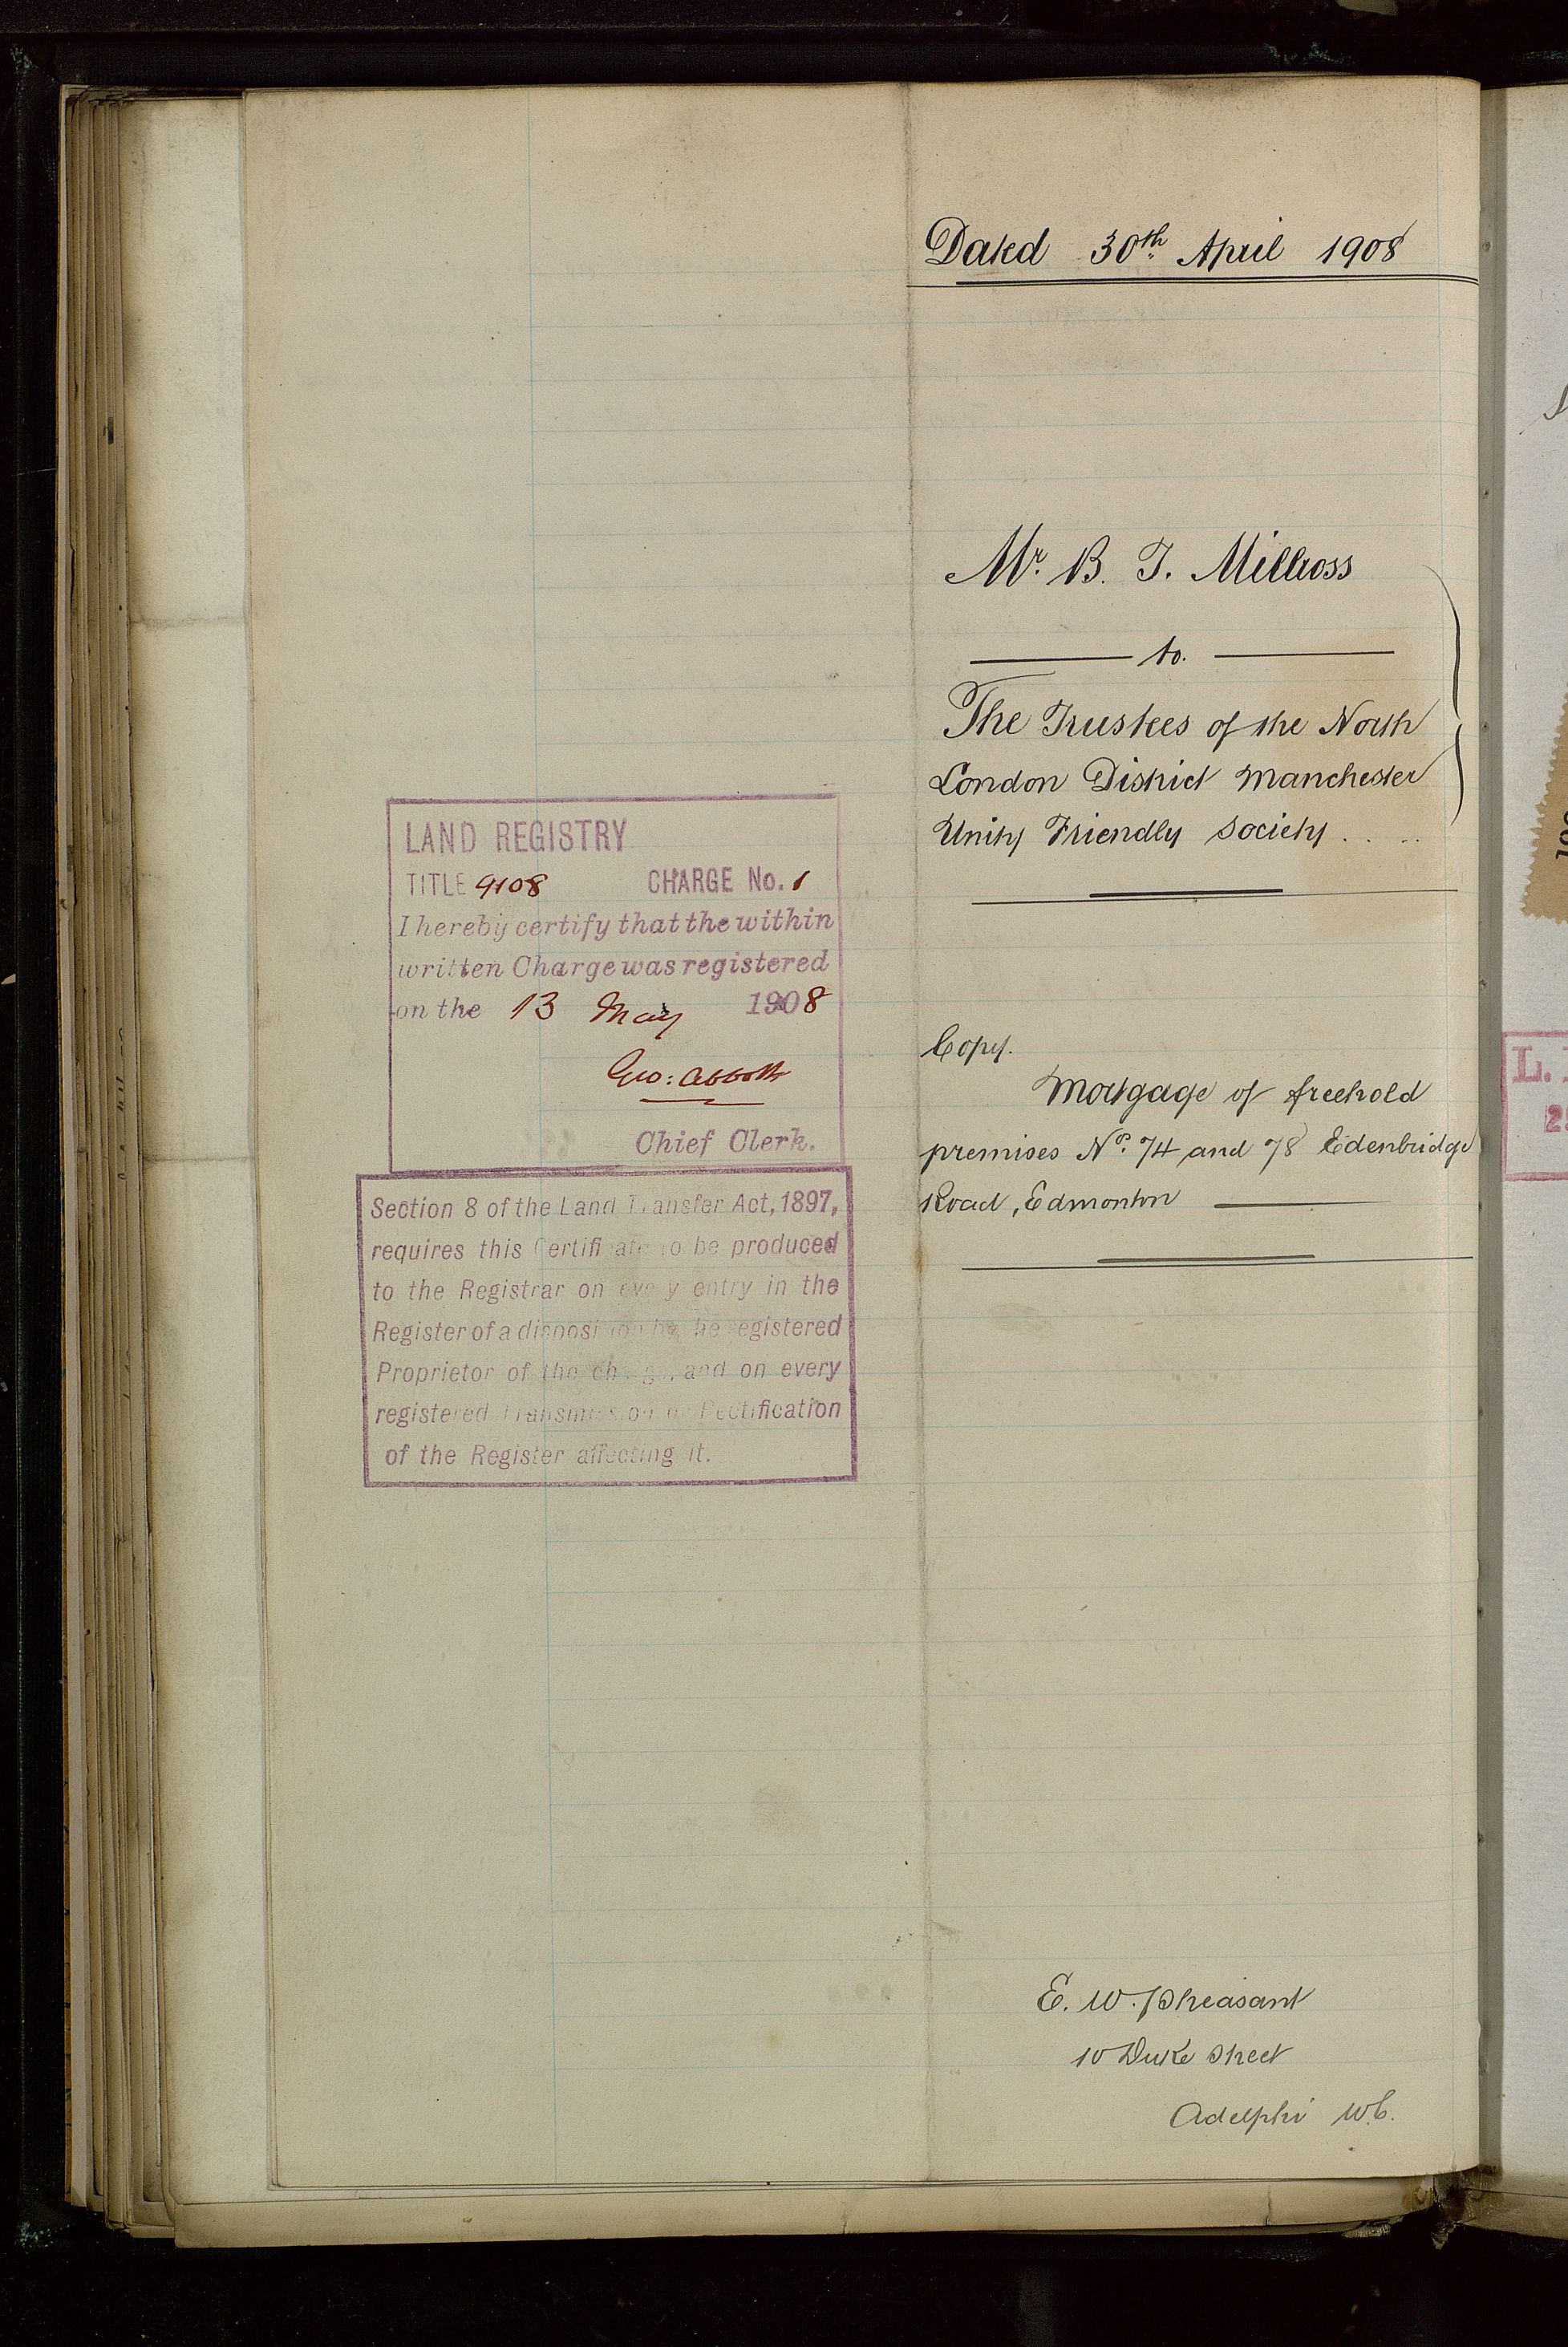 Dated 30th April 1908
Mr. B. T. Millross
to.
The Trustees of the North
London District Manchester
Unity Friendly Society . . . .
Copy.
Mortgage of freehold
premises No. 74 and 78 Edenbridge
Road, Edmonton
E. W. Pheasant
10 Duke Street
Adelphi W.C.
LAND REGISTRY
TITLE 9108 CHARGE No. 1
I hereby certify that the within
written Charge was registered
on the 13 May 1908
Geo: Abbott
Chief Clerk.
Section 8 of the Land Transfer Act, 1897,
requires this Certificate to be produced
to the Registrar on every entry in the
Register of a disposition by the registered
Proprietor of the charge, and on every
registered Transmission or Rectification
of the Register affecting it.
L.